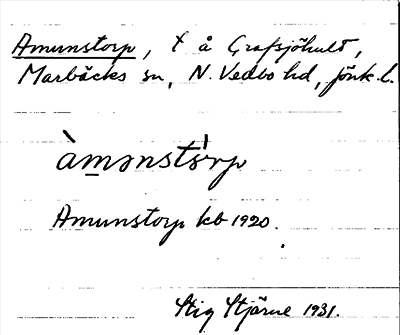 Amunstorp, t å Grafsjöhult,
Marbäcks sn, N. Vedbo hd, jönk. l.
àmənstorp
Amunstorp kb 1920.
Stig Stjärne 1931.